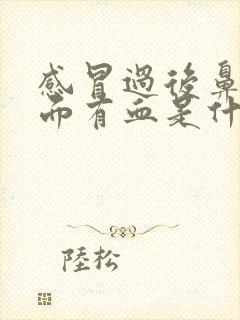 感冒過後鼻
而有血是什
陸松